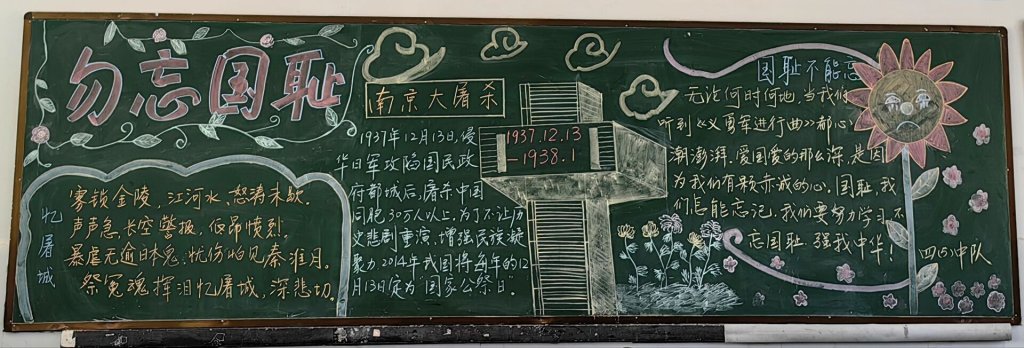 勿忘国耻
忆屠城
雾锁金陵，江河水，怒涛未歇。
声声急，长空警报，低昂愤烈。
暴虐无逾日本鬼，忧伤怕见秦淮月。
祭冤魂挥泪忆屠城，深悲切。
南京大屠杀
1937年12月13日，侵
华日军攻陷国民政
府都城后，屠杀中国
同胞30万人以上，为了不让历
史悲剧重演，增强民族凝
聚力，2014年我国将每年的12
月13日定为国家公祭日。
1937.12.13
-1938.1
国耻不能忘
无论何时何地，当我们
听到《义勇军进行曲》都心
潮澎湃，爱国爱的那么深，是因
为我们有颗赤诚的心，国耻，我
们怎能忘记，我们要努力学习，不
忘国耻，强我中华！
四（5）中队